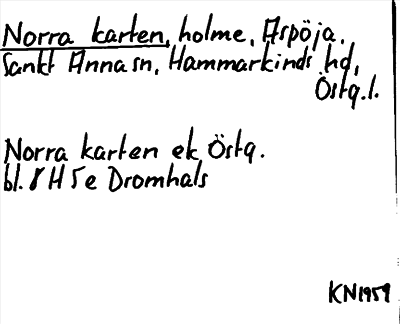 Norra karten, holme, Aspöja.
Sankt Anna sn, Hammarkinds hd,
Östg.l.
Norra karten ek Östg.
bl. 8 H 5 e Dromhals
KN 1959